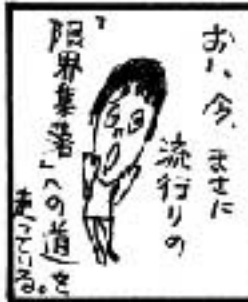 お、今、まさに
流行りの
"限界集落"への道を
走っている。